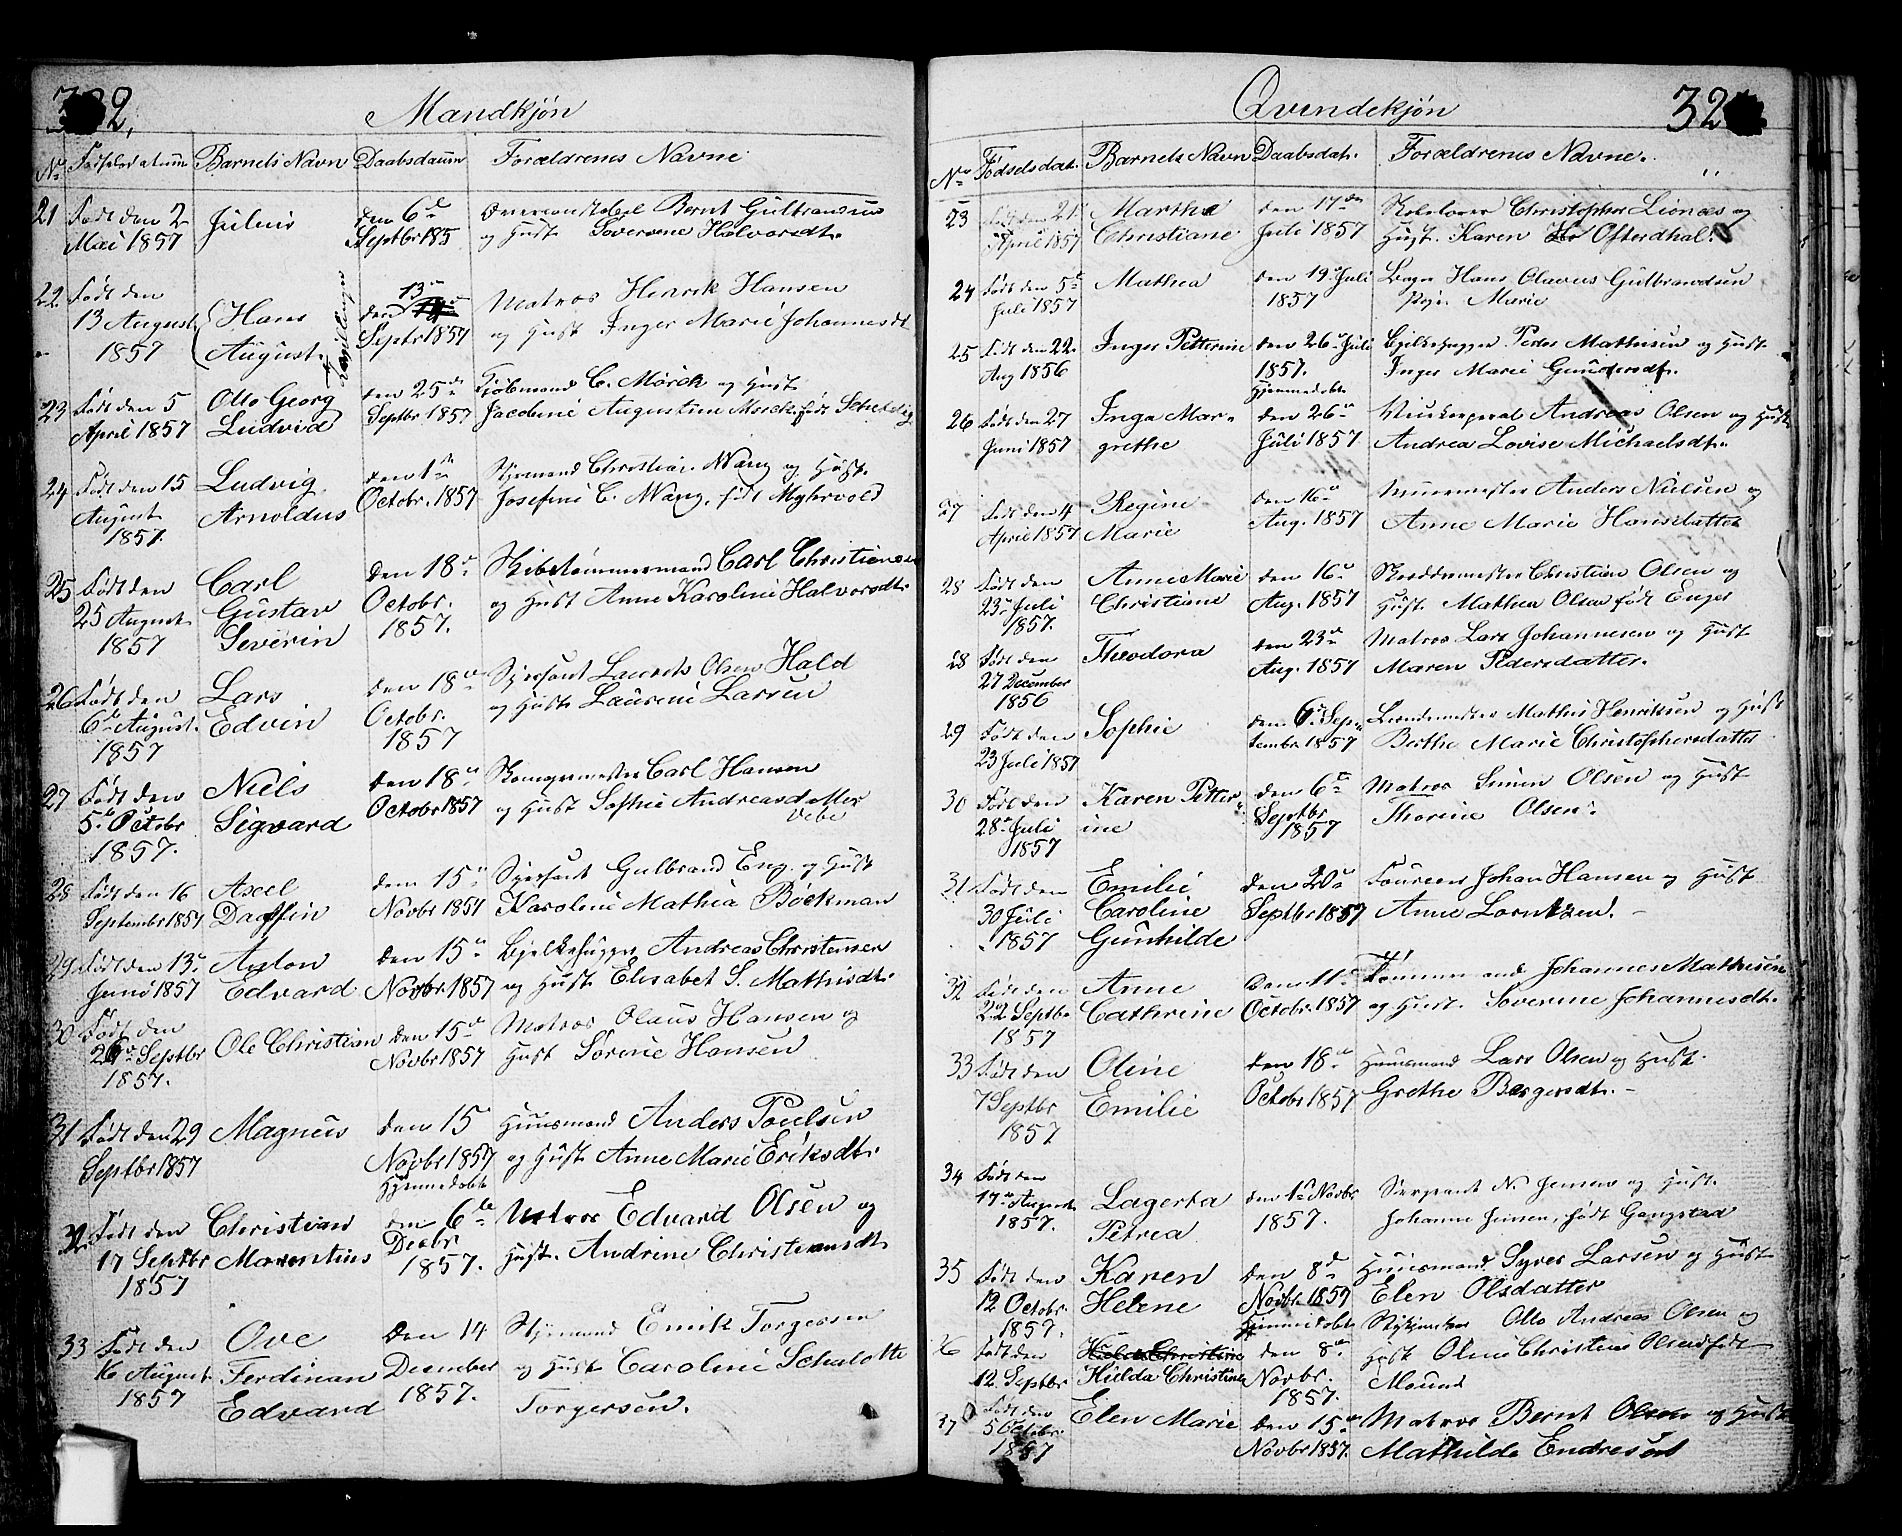 Mandkjön
No Fødselsdatum Barnets Navn Daabsdatum Forældrenes Navne
21 Født den 2 Mai 1857 Julius den 6te Septbr 185 Bernt Gulbransen
og Hust Severine Halvorsdt.
22 Født den 13 August 1857 Hans August Tvillinger den 13de Septbr 1857 Matros Henrik Hansen
og Hust Inger Marie Johannesdt
23 Født den 5 April 1857 Otto Georg Ludvig den 25de Septbr 1857 Kjöbmand C. Mörck og Hust
Jacobine Augustine Mörck født
24 Født den 15 August 1857. Ludvig Arnoldus den 1ste Octobr. 1857 Styrmand Christian Wang og Hust.
Josefine C. Wang, født Myhrvold
25 Født den 25 August 1857 Carl Gustav Severin Den 18de Octobr. 1857. Skibstömmermand Carl Christiansen
og Hust Anne Karoline Halvorsdt.
26 Født den 6te August 1857 Lars Edvin den 18de Octobr. 1857 Laurits Olsen Hald
og Hust Laurine Larsen
27 Født den 5te Octobr 1857. Niels Sigvard den 18de Octobr 1857 Skomagermester Carl Hansen
og Hust Sophie Andreasdatter
Vebe
28 Født den 16 September 1857 Axel Daffin den 15de Novbr 1857 Gulbrand Eng og Hust
Karoline Mathea Böckman
29 Født den 13de Juni 1857 Anton Edvard den 15de Novbr 1857 Bjelkehugger Andreas Christensen
og Hust Elisabet S. Mathisdt.
30 Født den 26de Septbr 1857. Ole Christian den 15de Novbr 1857 Matros Olaus Hansen og
Hust Sörine Hansen
31 Født den 29 Septbr 1857 Magnus den 15 Novbr 1857 Huusmand Anders Poulsen
og Hust Anne Marie Eriksdt.
32 Født den 17 Septbr 1857 Christian Marentius Hjemmedøbt den 6te Decbr 1857. Matros Edvard Olsen og
Hust. Andrine Christiansdt.
33 Født den 16 August 1857 Ove Ferdinan Edvard Den 14 December 1857. Styrmand Emik Torgersen
og Hust Caroline Schalotte
Torgersen.
Qvindekjön
No Fødselsdat. Barnets Navn Daabsdat. Forældrenes Navne.
23 Født den 21 April 1857 Martha Christiane den 17de Juli 1857 Christopher Lionæs og
Hust. Karen Ofterdhal.
24 Født den 5te Juli 1857 Mathea den 19de Juli 1857 Hans Olavus Gulbrandsen
Pige Marie
25 Født den 22 Aug 1856 Inger Petterine den 26de Juli 1857. Bjelkehugger Peder Mathisen og Hust
Inger Marie Gundersdt.
26 Født den 27 Juni 1857 Inga Margrethe Hjemmedøbt den 26de Juli 1857 Andreas Olsen og Hust
Andrea Lovise Michaelsdt.
27 Født den 4 April 1857 Regine Marie den 16de Aug. 1857 Muurmester Anders Nielsen og
Anne Marie Hansdatter
28 Født den 23de Juli 1857. Anne Marie Christiane den 16de Aug. 1857 Skreddermester Christian Olsen og
Hust. Mathea Olsen født Enger
28 Født den 27 December 1856 Theodora den 23de Aug. 1857 Matros Lars Johannesen og Hust
Maren Pedersdatter.
29 Født den 23 Juli 1857 Sophie den 6te September 1857 Mathis Henriksen og Hust
Berthe Marie Christophersdatter
30 Født den 28de Juli 1857 Karen Petterine den 6te Septbr 1857 Matros Simen Olsen og Hust
Thorine Olsen.
31 Født den 30 Juli 1857 Emilie Caroline Gunhilde den 20de Septbr 1857 Johan Hansen og Hust
Anne Lorntzen.
32 Født den 22 Septbr 1857 Anne Cathrine Den 11te October 1857 Tömmermand Johannes Mathisen
og Hust. Severine Johannesdt.
33 Født den 7 Septbr 1857 Oline Emilie den 18de Octobr 1857 Huusmand Lars Olsen og Hust.
Grethe Børgersdt.
34 Født den 17de August 1857. Lagerta Petrea den 1te Novbr 1857. Sergeant N. Jensen og Hust.
Johanne Jensen, født Gangstad
35 Født den 12 Octobr. 1857. Karen Helene den 8de Novbr 1857 Huusmand Syver Larsen og Hust
Elen Olsdatter
36 Født den 12 Septbr Hilda Christine Hjemmedøbt den 8de Novbr. 1857. Otto Andreas Olsen og
Hust Oline Christine Olsen født
37 Født den 5 Octobr. 1857 Elen Marie Den 15de Novbr 1857. Matros Bernt Olsen og Hust
Mathilde Endresen